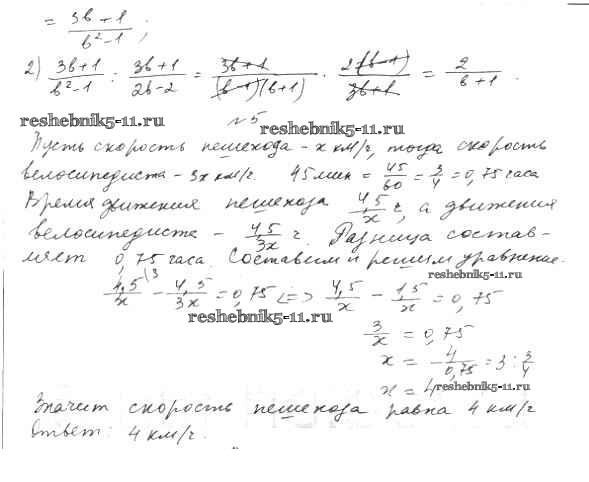 = (3b+1)/(b²-1);
2) (3b+1)/(b²-1) : (3b+1)/(2b-2) = (3b+1)/((b-1)(b+1)) · 2(b-1)/(3b+1) = 2/(b+1).
reshebnik5-11.ru
№5
reshebnik5-11.ru
Пусть скорость пешехода - x км/ч, тогда скорость
велосипедиста - 3x км/ч. 45 мин = 45/60 = 3/4 = 0,75 часа
Время движения пешехода 4,5/x ч, а движения
велосипедиста - 4,5/3x ч. Разница состав-
ляет 0,75 часа. Составим и решим уравнение.
reshebnik5-11.ru
4,5/x \3 - 4,5/3x = 0,75 <=> 4,5/x - 1,5/x = 0,75
reshebnik5-11.ru
3/x = 0,75
x = 4/0,75 = 3 : 3/4
x = 4
reshebnik5-11.ru
Значит скорость пешехода равна 4 км/ч
Ответ: 4 км/ч.